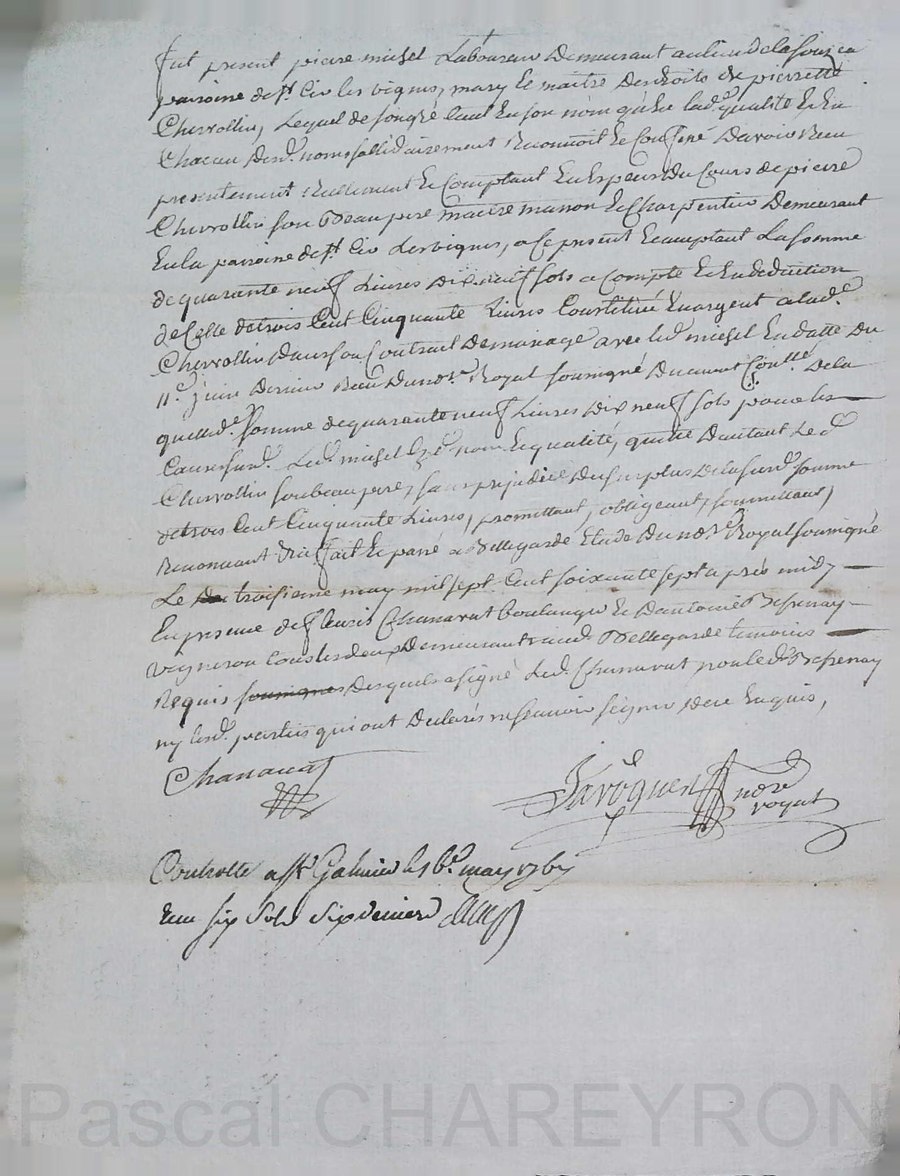 fut present pierre michel Laboureur Demeurant au lieu de la
paroisse de st. Cir les vignes, mary et maitre Des droits de pierrette
Cherrollin, Lequel de son gré tant En son nom qu'En lad.e qualité Et En
Chacun Desd. noms sollidairement Reconnoit Et Confesse D'avoir Reçu
presentement Reellement Et Comptant En Especes Du Cours de pierre
Cherrollin son Beau pere maitre masson Et Charpentier Demeurant
En la paroisse de st. Cir Les vignes, a ce present Et acceptant La somme
de quarante neuf Livres Dix neuf sols a Compte Et En deduction
de Celle de trois Cent Cinquante Livres Constituée En argent a lad.e
Cherrollin Dans son Contrait De mariage avec led. michel En datte Du
11.e juin Dernier Reçu Du no.re Royal soussigné Duement Con.llé De la
quelle somme de quarante neuf Livres Dix neuf sols pour les
Causes susd. Led. michel Ezd. nom Et qualité, quitte D'autant Led.
Cherrollin son beau pere, sans prejudice Du surplus De la susd. somme
de trois Cent Cinquante Livres, promettant, obligeant, soumettant,
Renonçant &c fait Et passé a Bellegarde Etude Du no.re Royal soussigné
Le troisieme may mil sept Cent soixante sept après midy
En presence de fleuris Chanavat boulanger Et D'antoine
vigneron tous les deux Demeurant aud. Bellegarde temoins
Requis soussignes Desquels a signé Led. Chanavat non led.
ny lesd. parties qui ont Declarés ne sçavoir signer De ce Enquis,
Chanavat
no.re
royal
Controllé a st. Galmier le may 1767
Reçu six sols six deniers